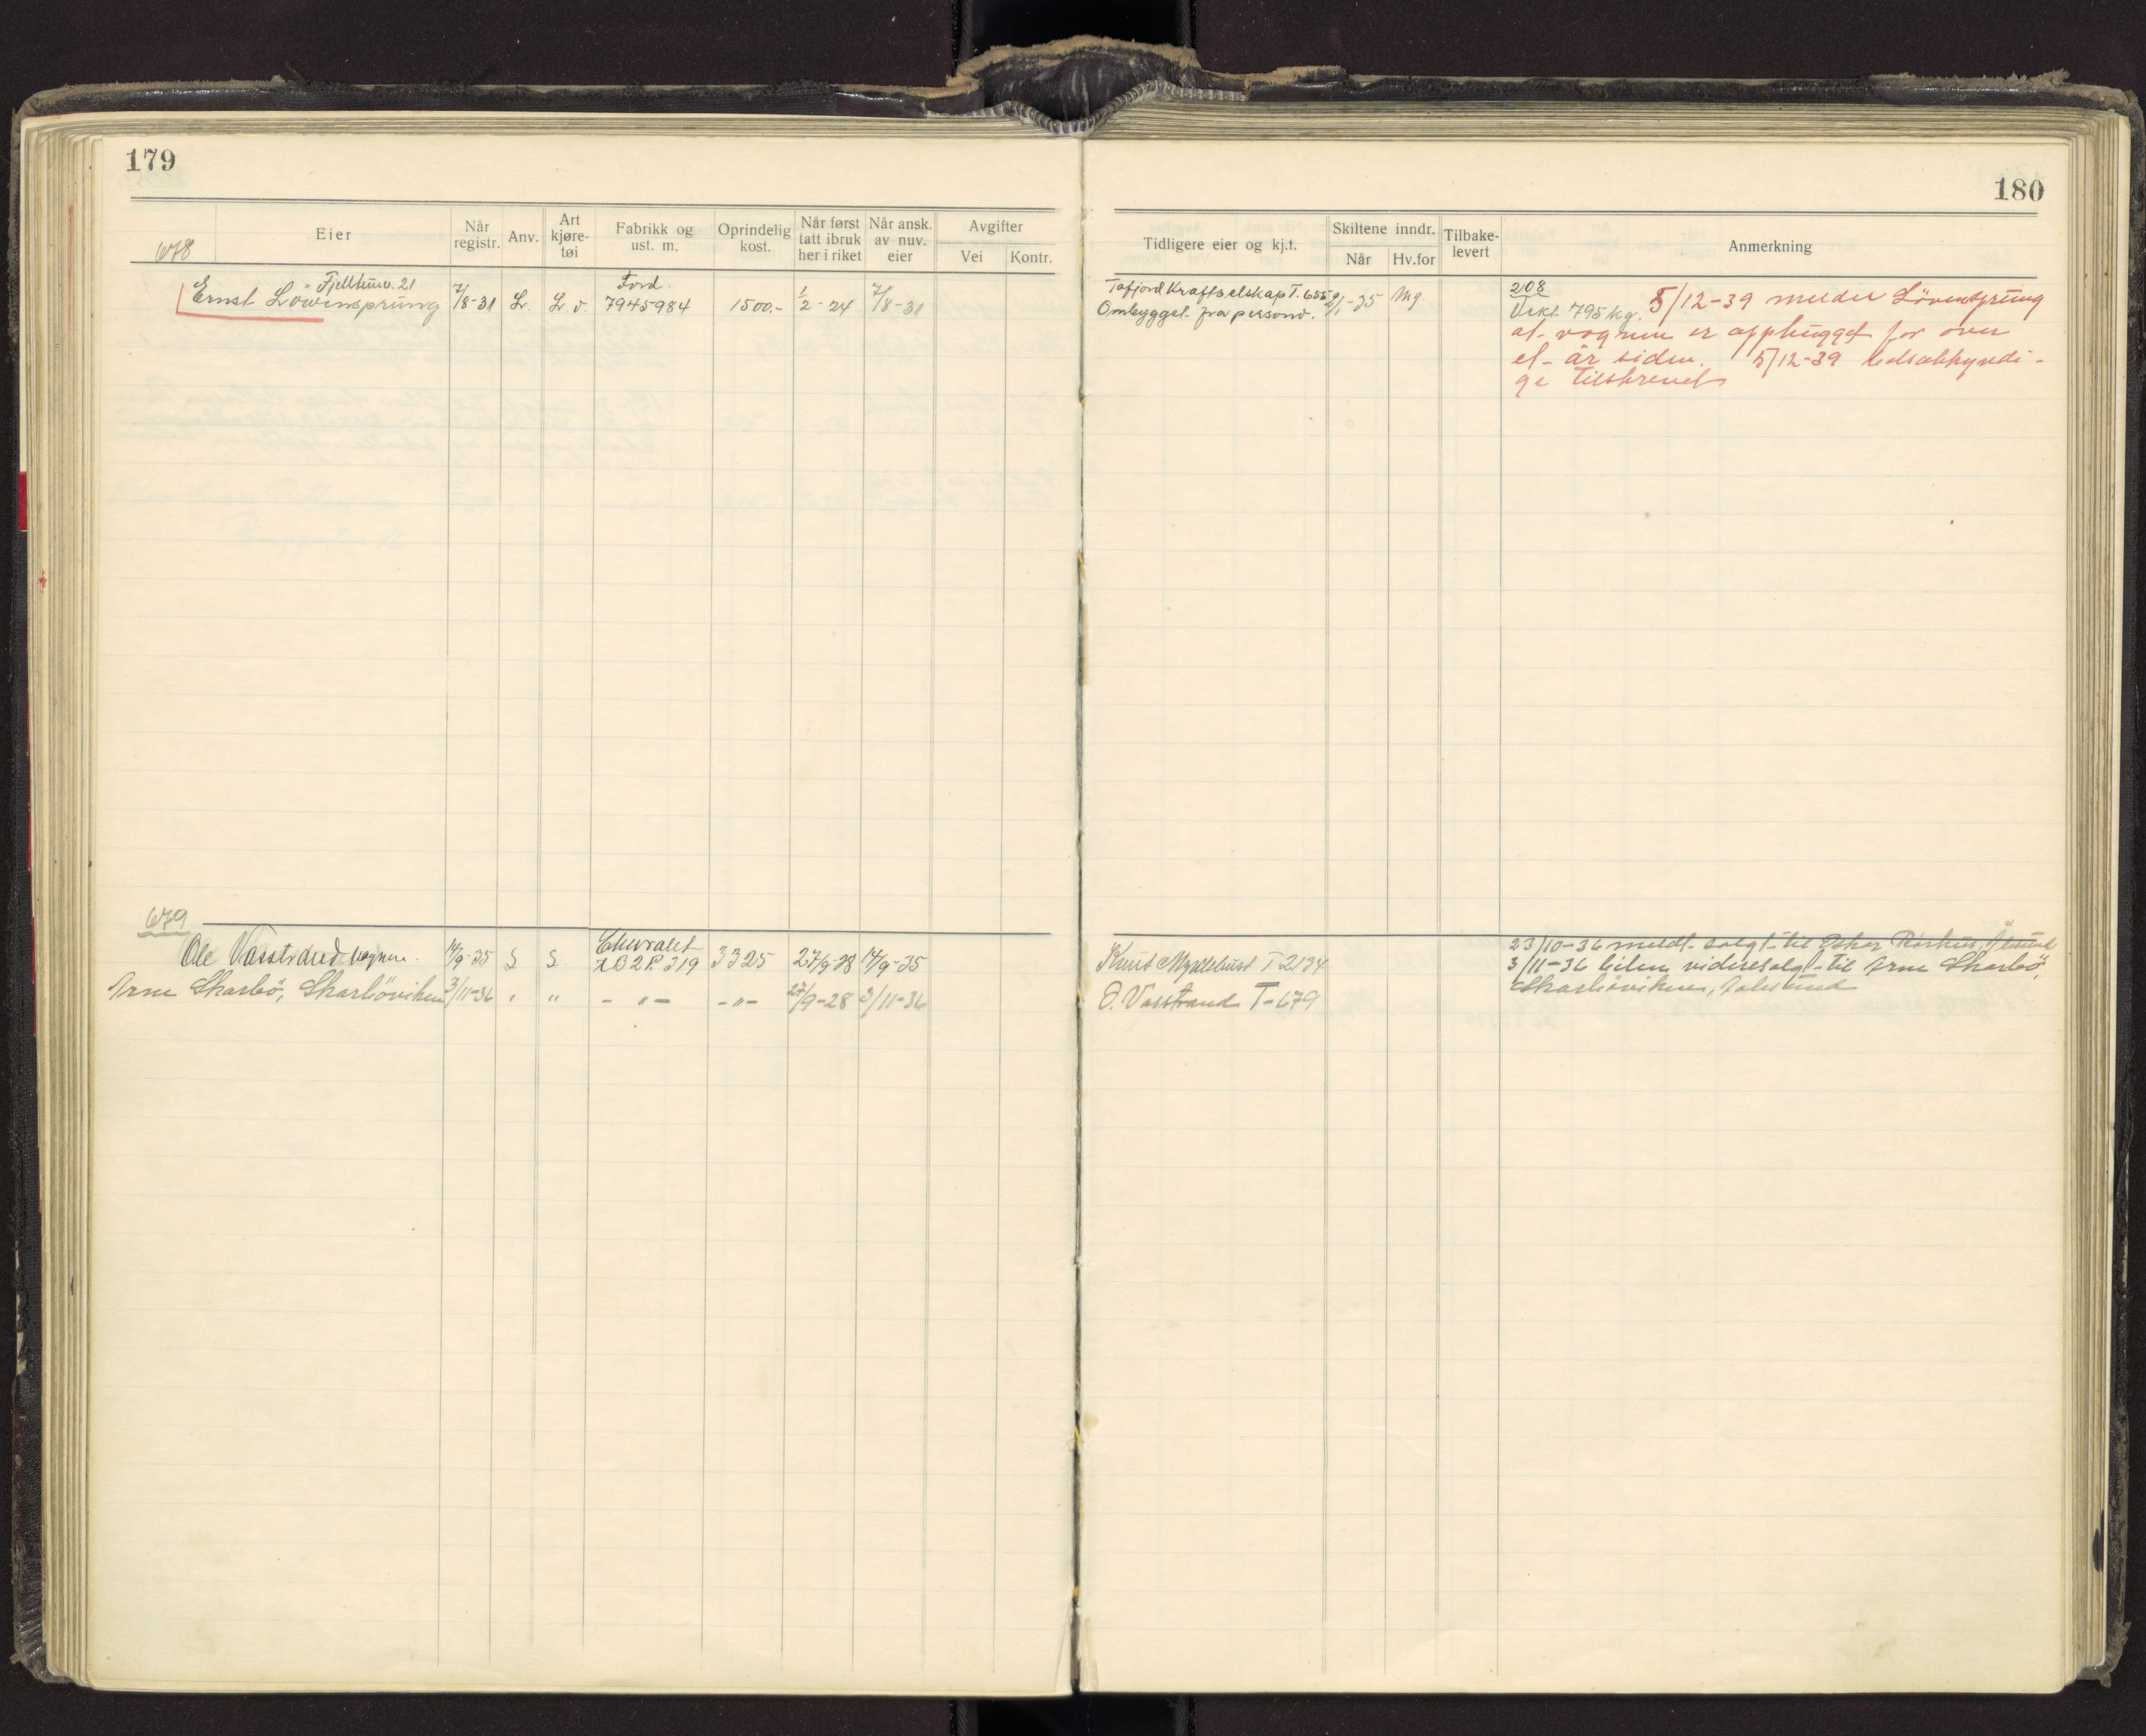 179
Eier
Når registr.
Anv.
Art kjøre-tøi
Fabrikk og ust. m.
Oprindelig kost.
Når først tatt ibruk her i riket
Når ansk. av nuv. eier
Avgifter
Vei
Kontr.
678
Fjelltunv. 21
Ford.
Ernst Löwensprung 7/8-31 L. L.v. 7945984 1500.- 1/2-24 7/8-31
679
Chevrolet
Ole Vasstrand 14/9-35 S S AB2P.319 3325 27/9-28 14/9-35
Arne Skarbö, Skarböviken 3/11-36 " " - " - - " - 27/9-28 3/11-36
180
Tidligere eier og kj.t.
Skiltene inndr.
Når
Hv.for
Tilbake-levert
Anmerkning
Tafjord Kraftselskap T. 655 2/1-35 Mg
Ombygget fra personv.
208
Vekt 795 kg. 5/12-39 melder Lövensprung
at vognen er opphugget for over
et år siden. 5/12-39 bilsakkyndi-
ge tilskrevet
Knut Myklebust T 2134
O. Vasstrand T-679
23/10-36 meldt solgt til Oskar Rörhus, Ålesund
3/11-36 bilen videresolgt til Arne Skarbö,
Skarböviken, Aalesund